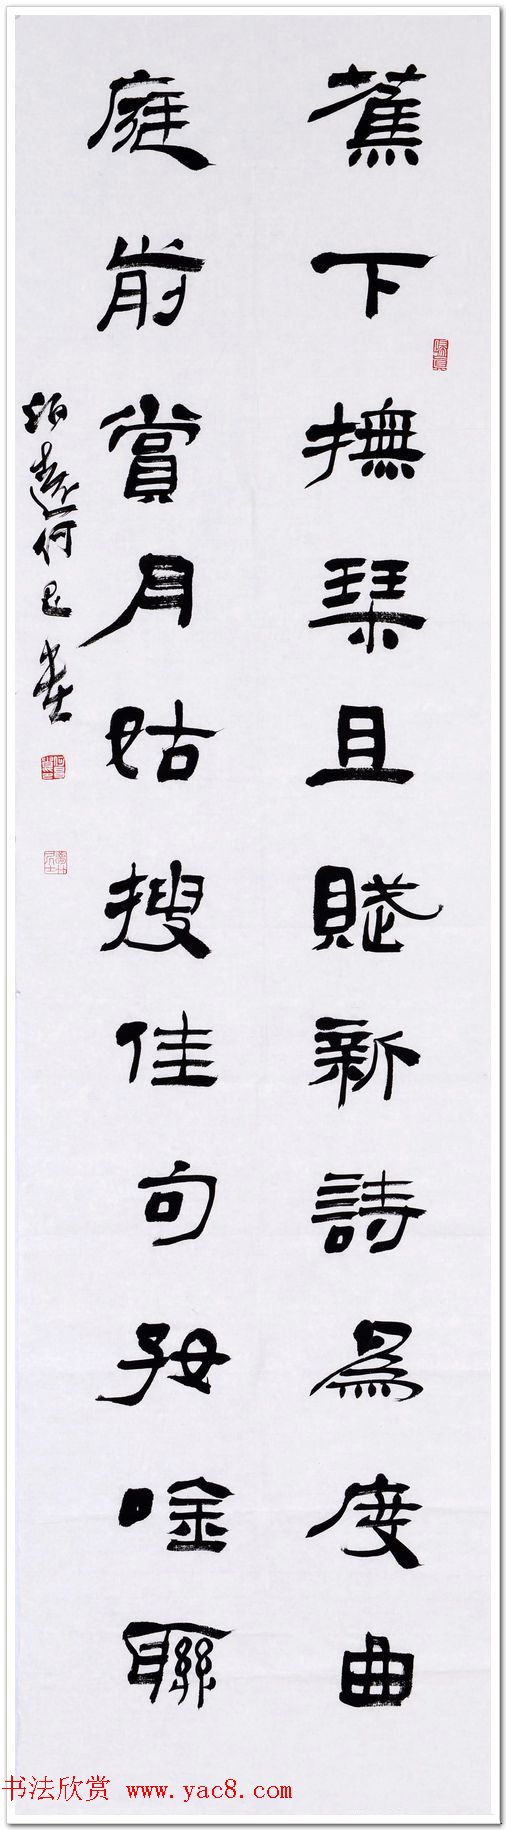 蕉下撫琹且賦新詩爲度曲
庭前賞月姑搜佳句好唫聯
遠何書
书法欣赏 www.yac8.com